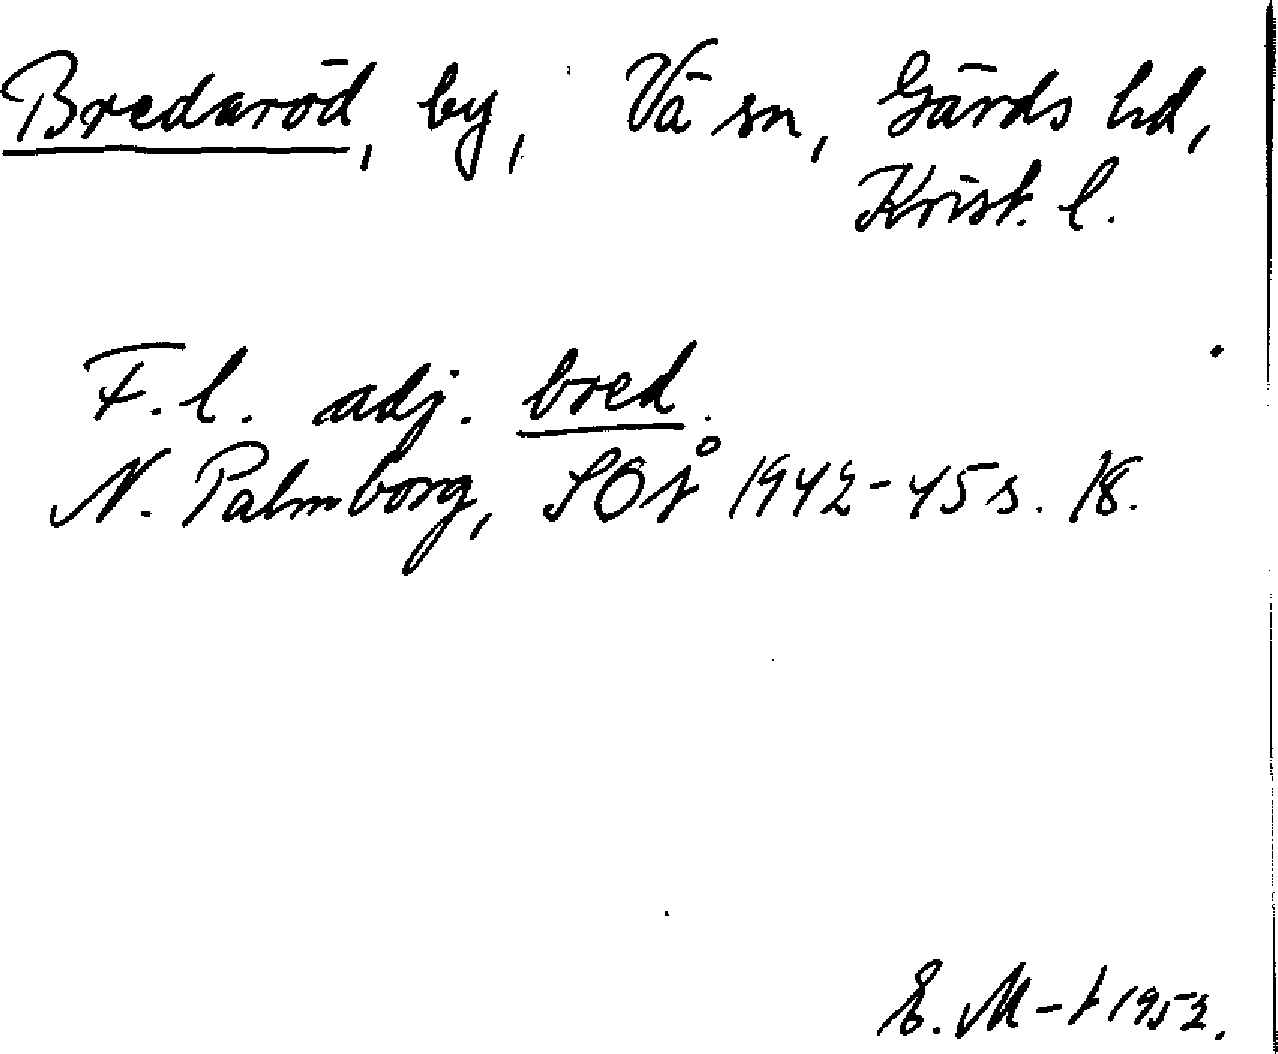 Bredaröd, by, Vä sn, Gärds hd,
Krist. l.
F. l. adj. bred.
N. Palmborg, SOÅ 1942-45 s. 18.
E. M-t 1952.